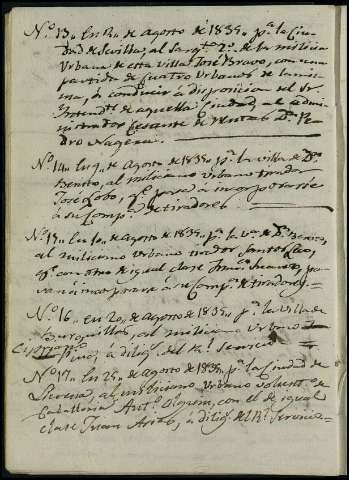 N.º 13,, En 12,, de Agosto de 1835,, p.ª la Ciu-
dad de Sevilla, al Sarg.to 2.º de la milicia
Urbana de esta villa José Bravo, con una
partida de Cuatro Urbanos de la mis-
ma, a conducir a disposicion del Sr.
Intend.te de aquella Ciudad, al admi-
nistrador Cesante de rentas D.n Pe-
dro Nagera.
N.º 14,, En 9,, de Agosto de 1835,, p.ª la villa de D.n
Benito, al miliciano Urbano tirador
José Lobo, q.e pasa a incorporarse
a su Comp.ª de tiradores.
N.º 15,, En 10,, de Agosto de 1835,, p.ª la V.ª de D.n Benito,
al miliciano Urbano tirador Santos
q.e con otro de igual clase Fran.co Suarez, pa-
van a incorporarse a su Comp.ª de tiradores.
N.º 16,, En 20,, de Agosto de 1835,, p.ª la Villa de
Burguillos, al miliciano Urbano
a dilig.s del R.l servicio
N.º 17,, En 25,, de Agosto de 1835,, p.ª la Ciudad de
Llerena, al miliciano Urbano volunt.º de
Caballeria Ant.º con el de igual
clase Juan a dilig.s del R.l servicio